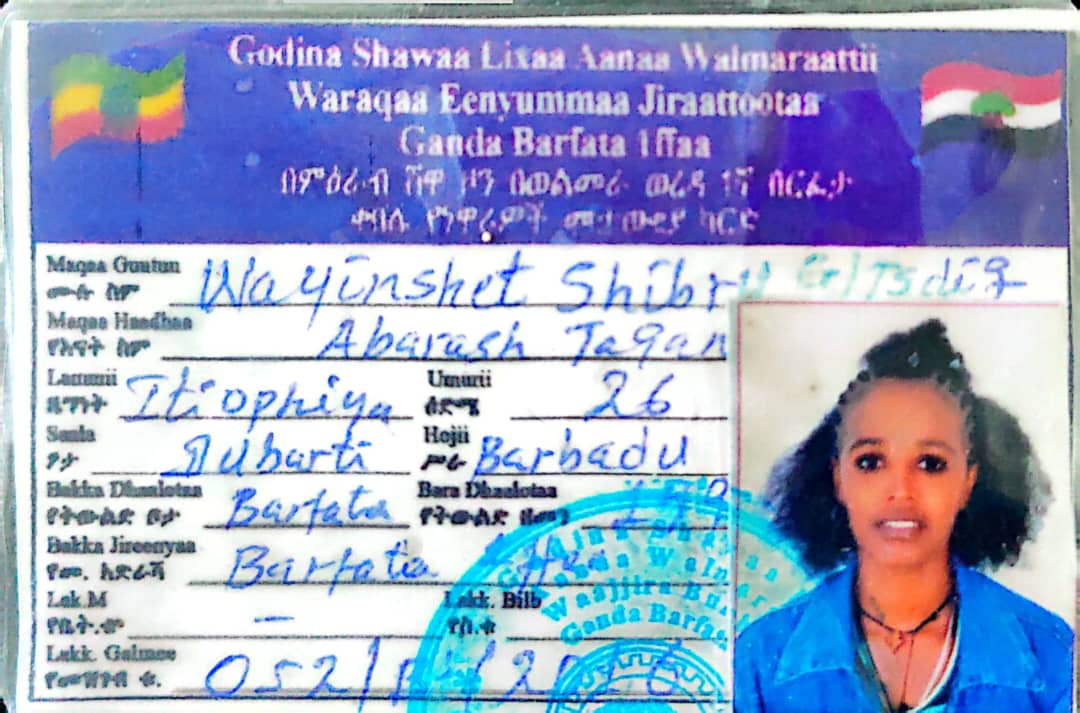 Godina Shawaa Lixaa Aanaa Walmaraattii
Waraqaa Eenyummaa Jiraattootaa
Ganda Barfata 1ffaa
በምዕራብ ሸዋ ዞን በወልመራ ወረዳ 1ኛ በርፈታ
ቀበሌ የነዋሪዎች መታወቂያ ካርድ
Maqaa Guutuu Wayinshet Shibru G/Tsdiq
ሙሉ ስም
Maqaa Haadhaa Abarash Tagan
የእናት ስም
Lammii Itiophiya Umurii 26
ዜግነት ዕድሜ
Saala Dubarti Hojii Barbadu
ፆታ ሥራ
Bakka Dhaalotaa Barfata Bara Dhaalotaa
የትውልድ ቦታ የትውልድ ዘመን
Bakka Jireenyaa Barfata
የመ. አድራሻ
Lak.M – Lakk. Bilb
የቤት.ቁ የስ.ቁ
Lakk. Galmee 052/
የመዝገብ ቁ.
Ganda Barfa